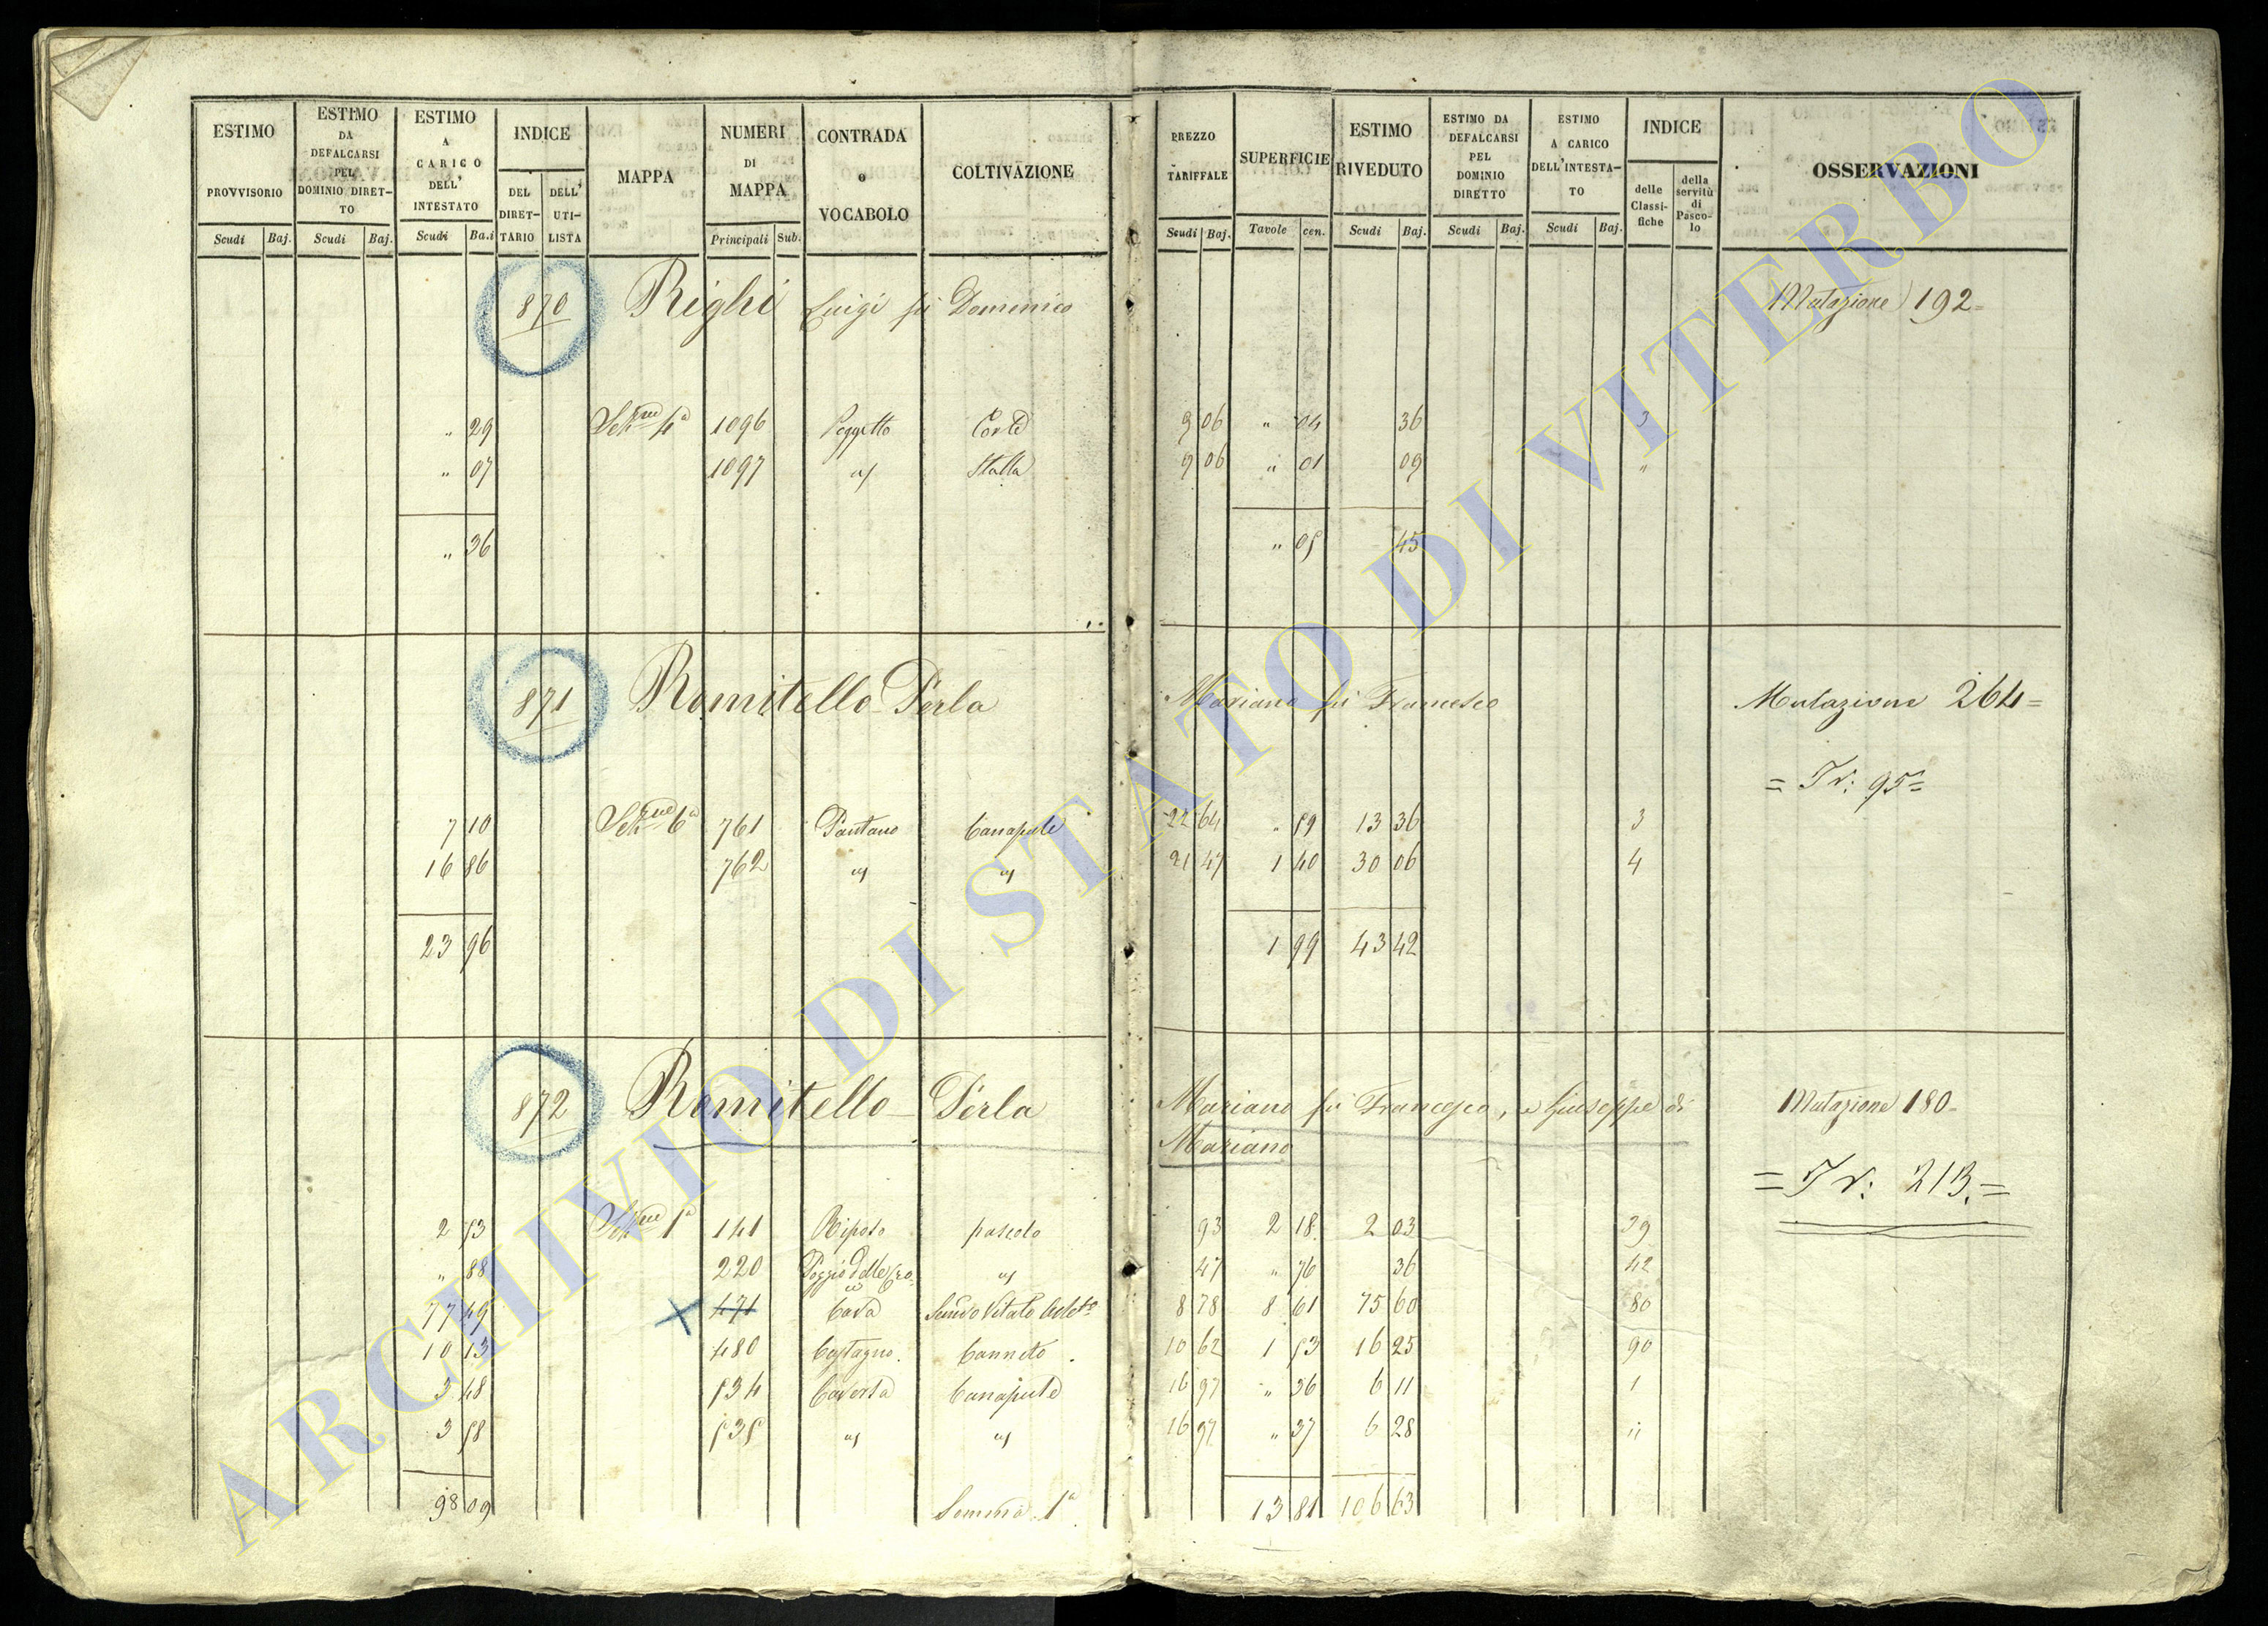 ESTIMO PROVVISORIO Scudi Baj.
ESTIMO DA DEFALCARSI PEL DOMINIO DIRET-TO Scudi Baj.
ESTIMO A CARICO DELL' INTESTATO Scudi Ba.i
INDICE DEL DIRET-TARIO DELL' UTI-LISTA
MAPPA
NUMERI DI MAPPA Principali Sub.
CONTRADA o VOCABOLO
COLTIVAZIONE
PREZZO TARIFFALE Scudi Baj.
SUPERFICIE Tavole cen.
ESTIMO RIVEDUTO Scudi Baj.
ESTIMO DA DEFALCARSI PEL DOMINIO DIRETTO Scudi Baj.
ESTIMO A CARICO DELL'INTESTA-TO Scudi Baj.
INDICE delle Classi-fiche della servitù di Pasco-lo
OSSERVAZIONI
870 Righi Luigi fù Domenico Mutazione 192=
" 29 Sehne 4a 1096 Poggetto Corte 9 06 " 04 36 3
" 07 1097 " Stalla 9 06 " 01 09 "
" 36 " 05 45
871 Romitello Perla Mariano fù Francesco Mutazione 264=
= Tr: 95=
7 10 6a 761 Pantano Canapule 22 64 " 59 13 36 3
16 86 762 " " 21 47 1 40 30 06 4
23 96 1 99 43 42
872 Romitello Perla Mariano fù Francesco, e Giuseppe di Mutazione 180=
Mariano
= Tr: 213.=
2 53 1a 141 Riposo pascolo 93 2 18 2 03 39
" 88 220 Poggio delle Cro " 47 " 76 36 42
77 49 471 Cava 8 78 8 61 75 60 86
10 13 480 Castagno. Canneto. 10 62 1 53 16 25 90
3 48 534 Caverta Canapule 16 97 " 36 6 11 1
3 58 535 " " 16 97 " 37 6 28 "
98 09 Somma 1a 13 81 106 63
ARCHIVIO DI STATO DI VITERBO